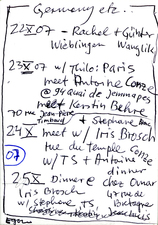 Germany etc..
22 X 07 - Rachel + Günter
Waiblingen
23 X 07 w/ Thilo: Paris
meet Antoine
@ 94 Quai de Jemmapes
meet Kerstin Behre
70 rue Jean-Père
Timbaud + Stephane
24 X meet w/ Iris Brosch
rue du temple
07 w/ TS + Antoine dinner
25 X Dinner @ chez Omar
Iris Brosch 47 rue de
w/ Stephane, TS, Bretagne